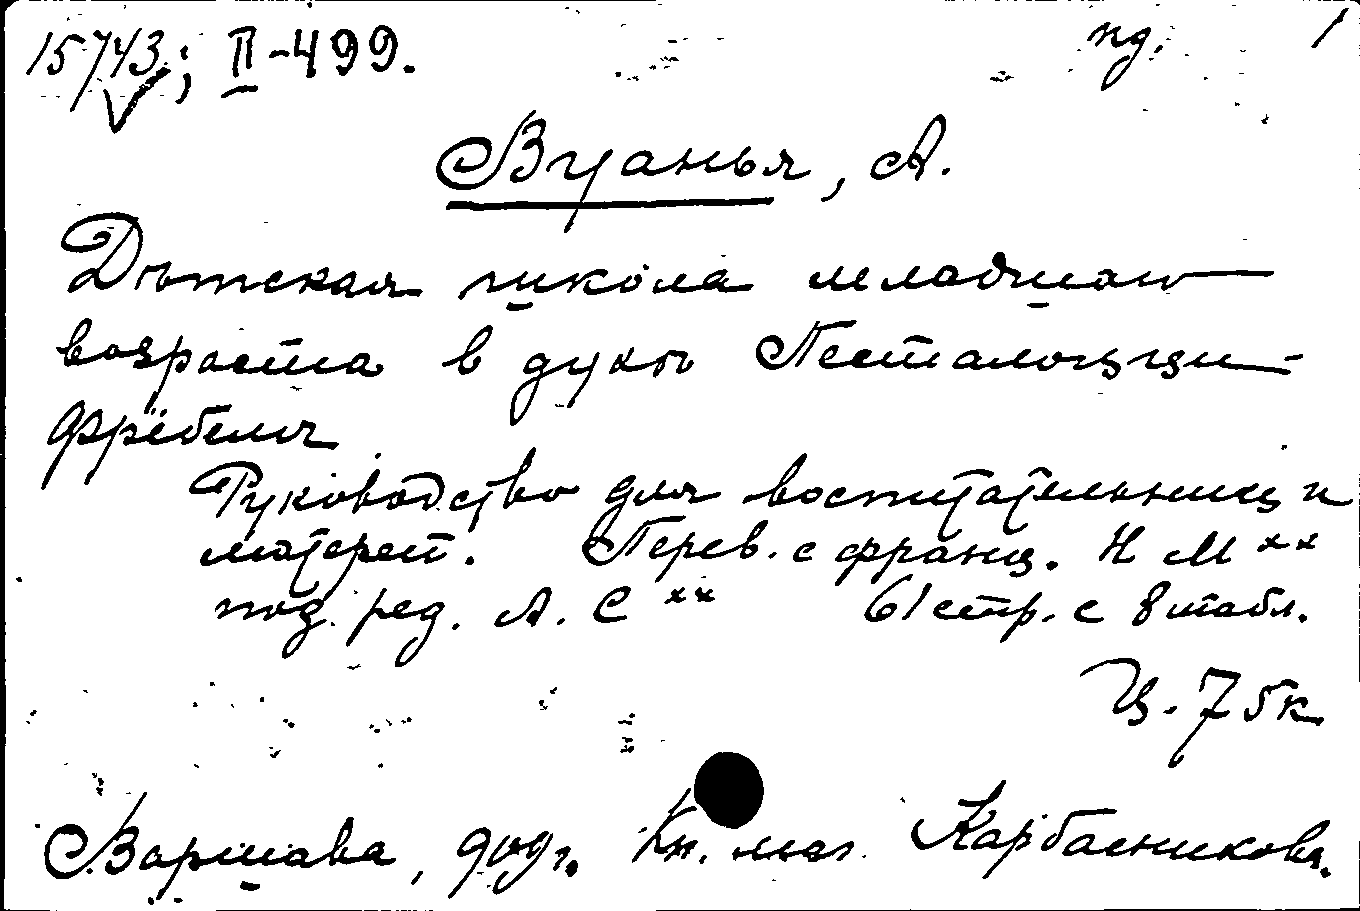 15743; II-499. пд. 1
Вуанья, А.
Дѣтская школа младшаго
возраста в духѣ Песталоцци-
Фрёбеля
Руководство для воспитательниц и
матерей. Перев. с франц. Н М **
под. ред. А. С ** 61 стр. с 8 табл.
Ц. 75 к
Варшава, Кн. маг. Карбасникова.